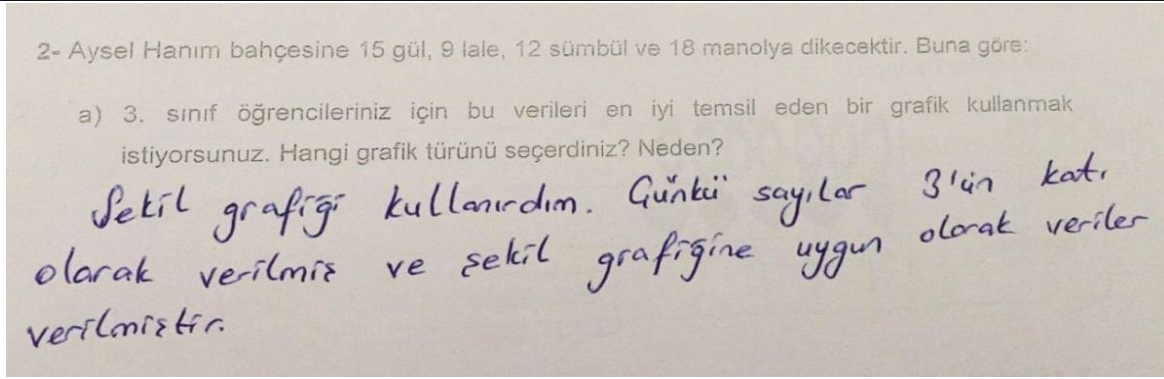 2- Aysel Hanım bahçesine 15 gül, 9 lale, 12 sümbül ve 18 manolya dikecektir. Buna göre:
a) 3. sınıf öğrencileriniz için bu verileri en iyi temsil eden bir grafik kullanmak
istiyorsunuz. Hangi grafik türünü seçerdiniz? Neden?
Şekil grafiği kullanırdım. Çünkü sayılar 3'ün katı
olarak verilmiş ve şekil grafiğine uygun olarak veriler
verilmiştir.